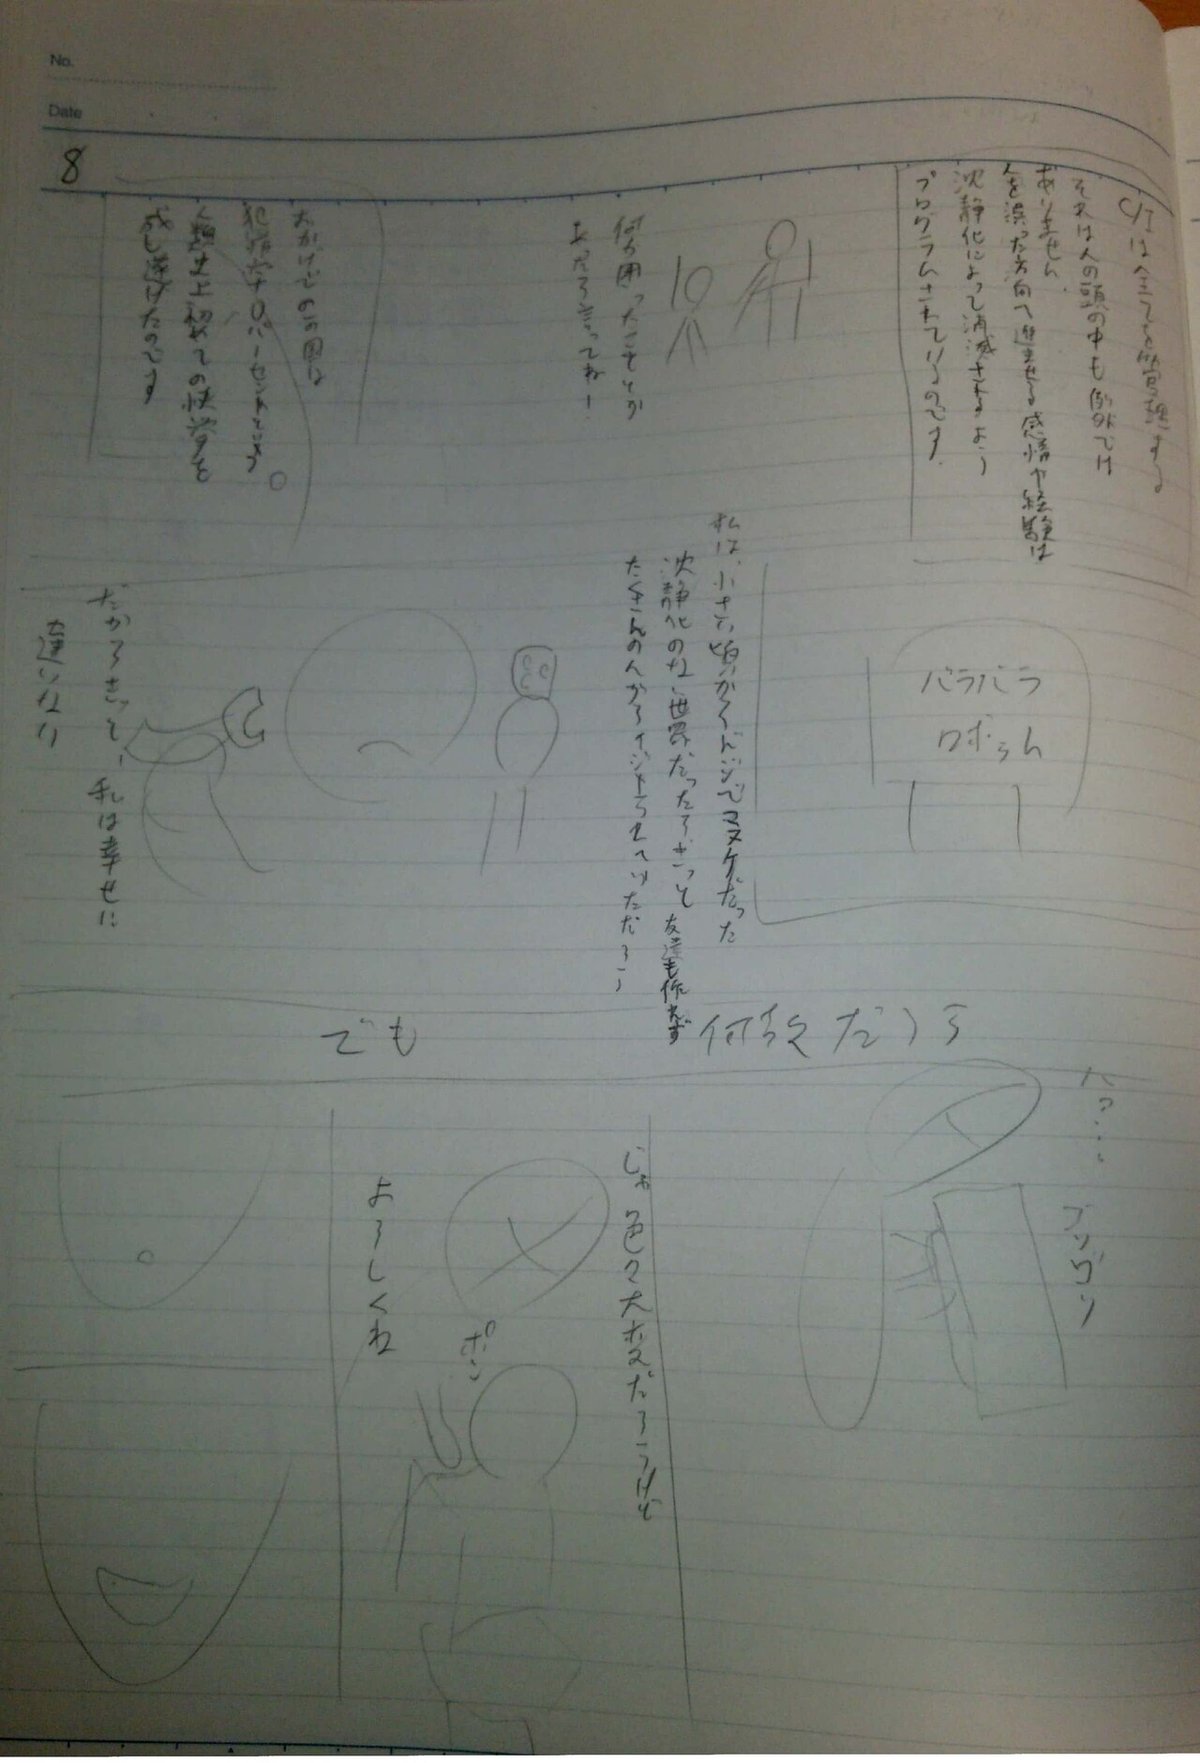 No.
Date
8
は全てを管理する
それは人の頭の中も例外では
ありません
人を誤った方向へ進ませる感情や経験は
沈静化によって消滅されるよう
プログラムされているのです
何か困ったことか
あったら言ってね!
おかげでこの国は
犯罪率0パーセントという
人類史上初めての快挙を
成し遂げたのです
バラバラ
ロボくん
私は、小さい頃からドジでマヌケだった
沈静化のない世界だったらきっと友達も作れず
たくさんの人からイジメられていただろう
だからきっと、私は幸せに
違いない
何故だろう
でも
へ?...
ゴソゴソ
じゃ色々大変だろうけど
ポン
よろしくね